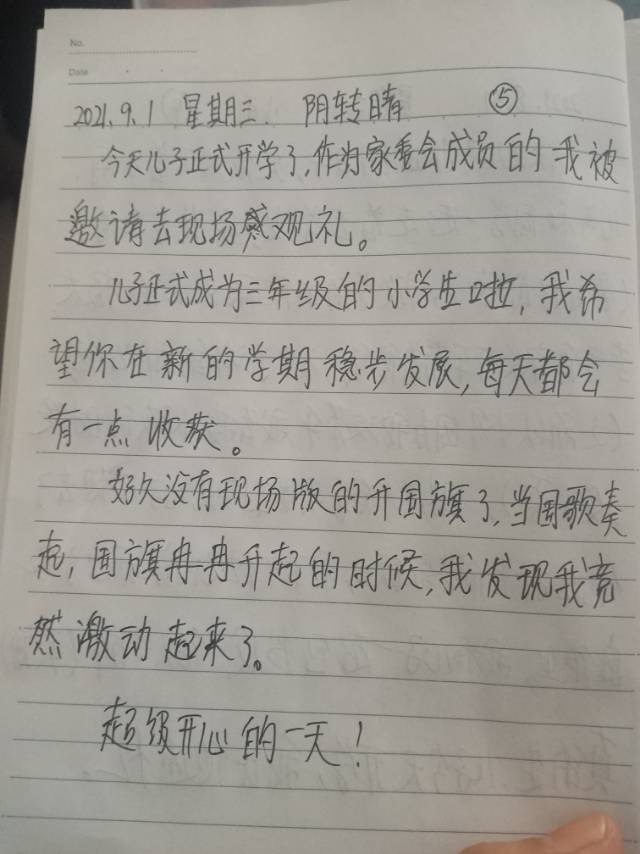 No.
Date
2021.9.1 星期三. 阴转晴 ⑤
今天儿子正式开学了,作为家委会成员的我被
邀请去现场感观礼。
儿子正式成为三年级的小学生啦,我希
望你在新的学期稳步发展,每天都会
有一点收获。
好久没有现场版的升国旗了,当国歌奏
起,国旗冉冉升起的时候,我发现我竟
然激动起来了。
超级开心的一天!